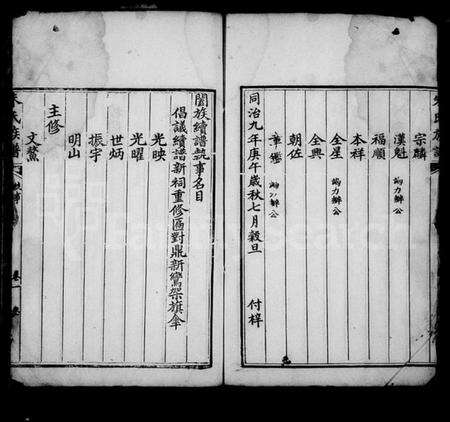 宗麟
漢魁 力辦公
福順
本祥
全星 力辦公
全興
朝佐
力辦公
同治九年庚午歲秋七月穀旦 付梓
闔族續譜執事名目
倡議續譜新祠重修區對鼎新鸞架旗傘
光映
光曜
世炳
振宇
明山
主修
文鰲
氏族譜 卷一